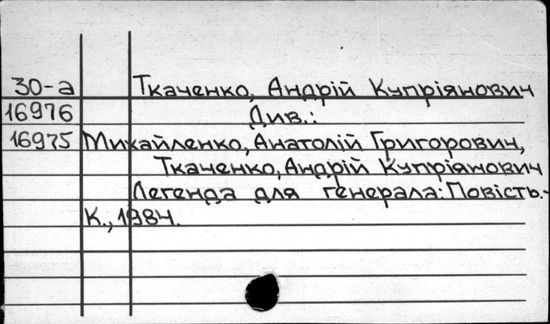 30-а Ткаченко, Андрій Купріянович
16976 Див.:
16975 Михайленко, Анатолій Григорович,
Ткаченко, Андрій Купріянович
Легенда для генерала: Повість.-
К., 1984.